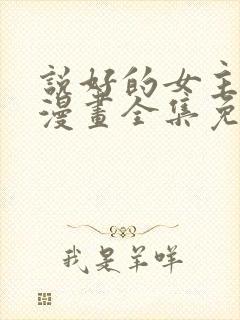 說好的女主
漫畫全集免
我是羊咩